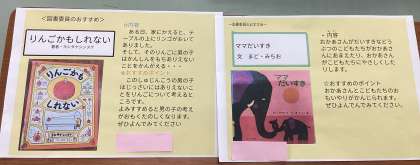 <図書委員のおすすめ>
りんごかもしれない
著者・ヨシタケシンスケ
☆内容
ある日、家にかえると、テ
ーブルの上にリンゴがおいて
ありました。
そして、そのりんごに男の子
はかんしんをもちありえない
ことをかんがえる・・・
☆おすすめポイント
このしゅじんこうの男の子
はじっさいにはありえないこ
とをりんごについて考えると
ころです。
よみすすめると男の子の考え
がおもくたのしくなります。
ぜひよんでみてください。
りんごかも
しれない
<図書委員のおすすめ>
ママだいすき
文 まど・みちお
☆内容
おかあさんがだいすきなどう
ぶつのこどもたちがおかあさ
んにあまえたり、おかあさん
がこどもたちにやさしくした
りします。
☆おすすめのポイント
おかあさんとこどもたちのお
もいやりがかんじられます。
ぜひよんでみてください。
ママ
だいすき